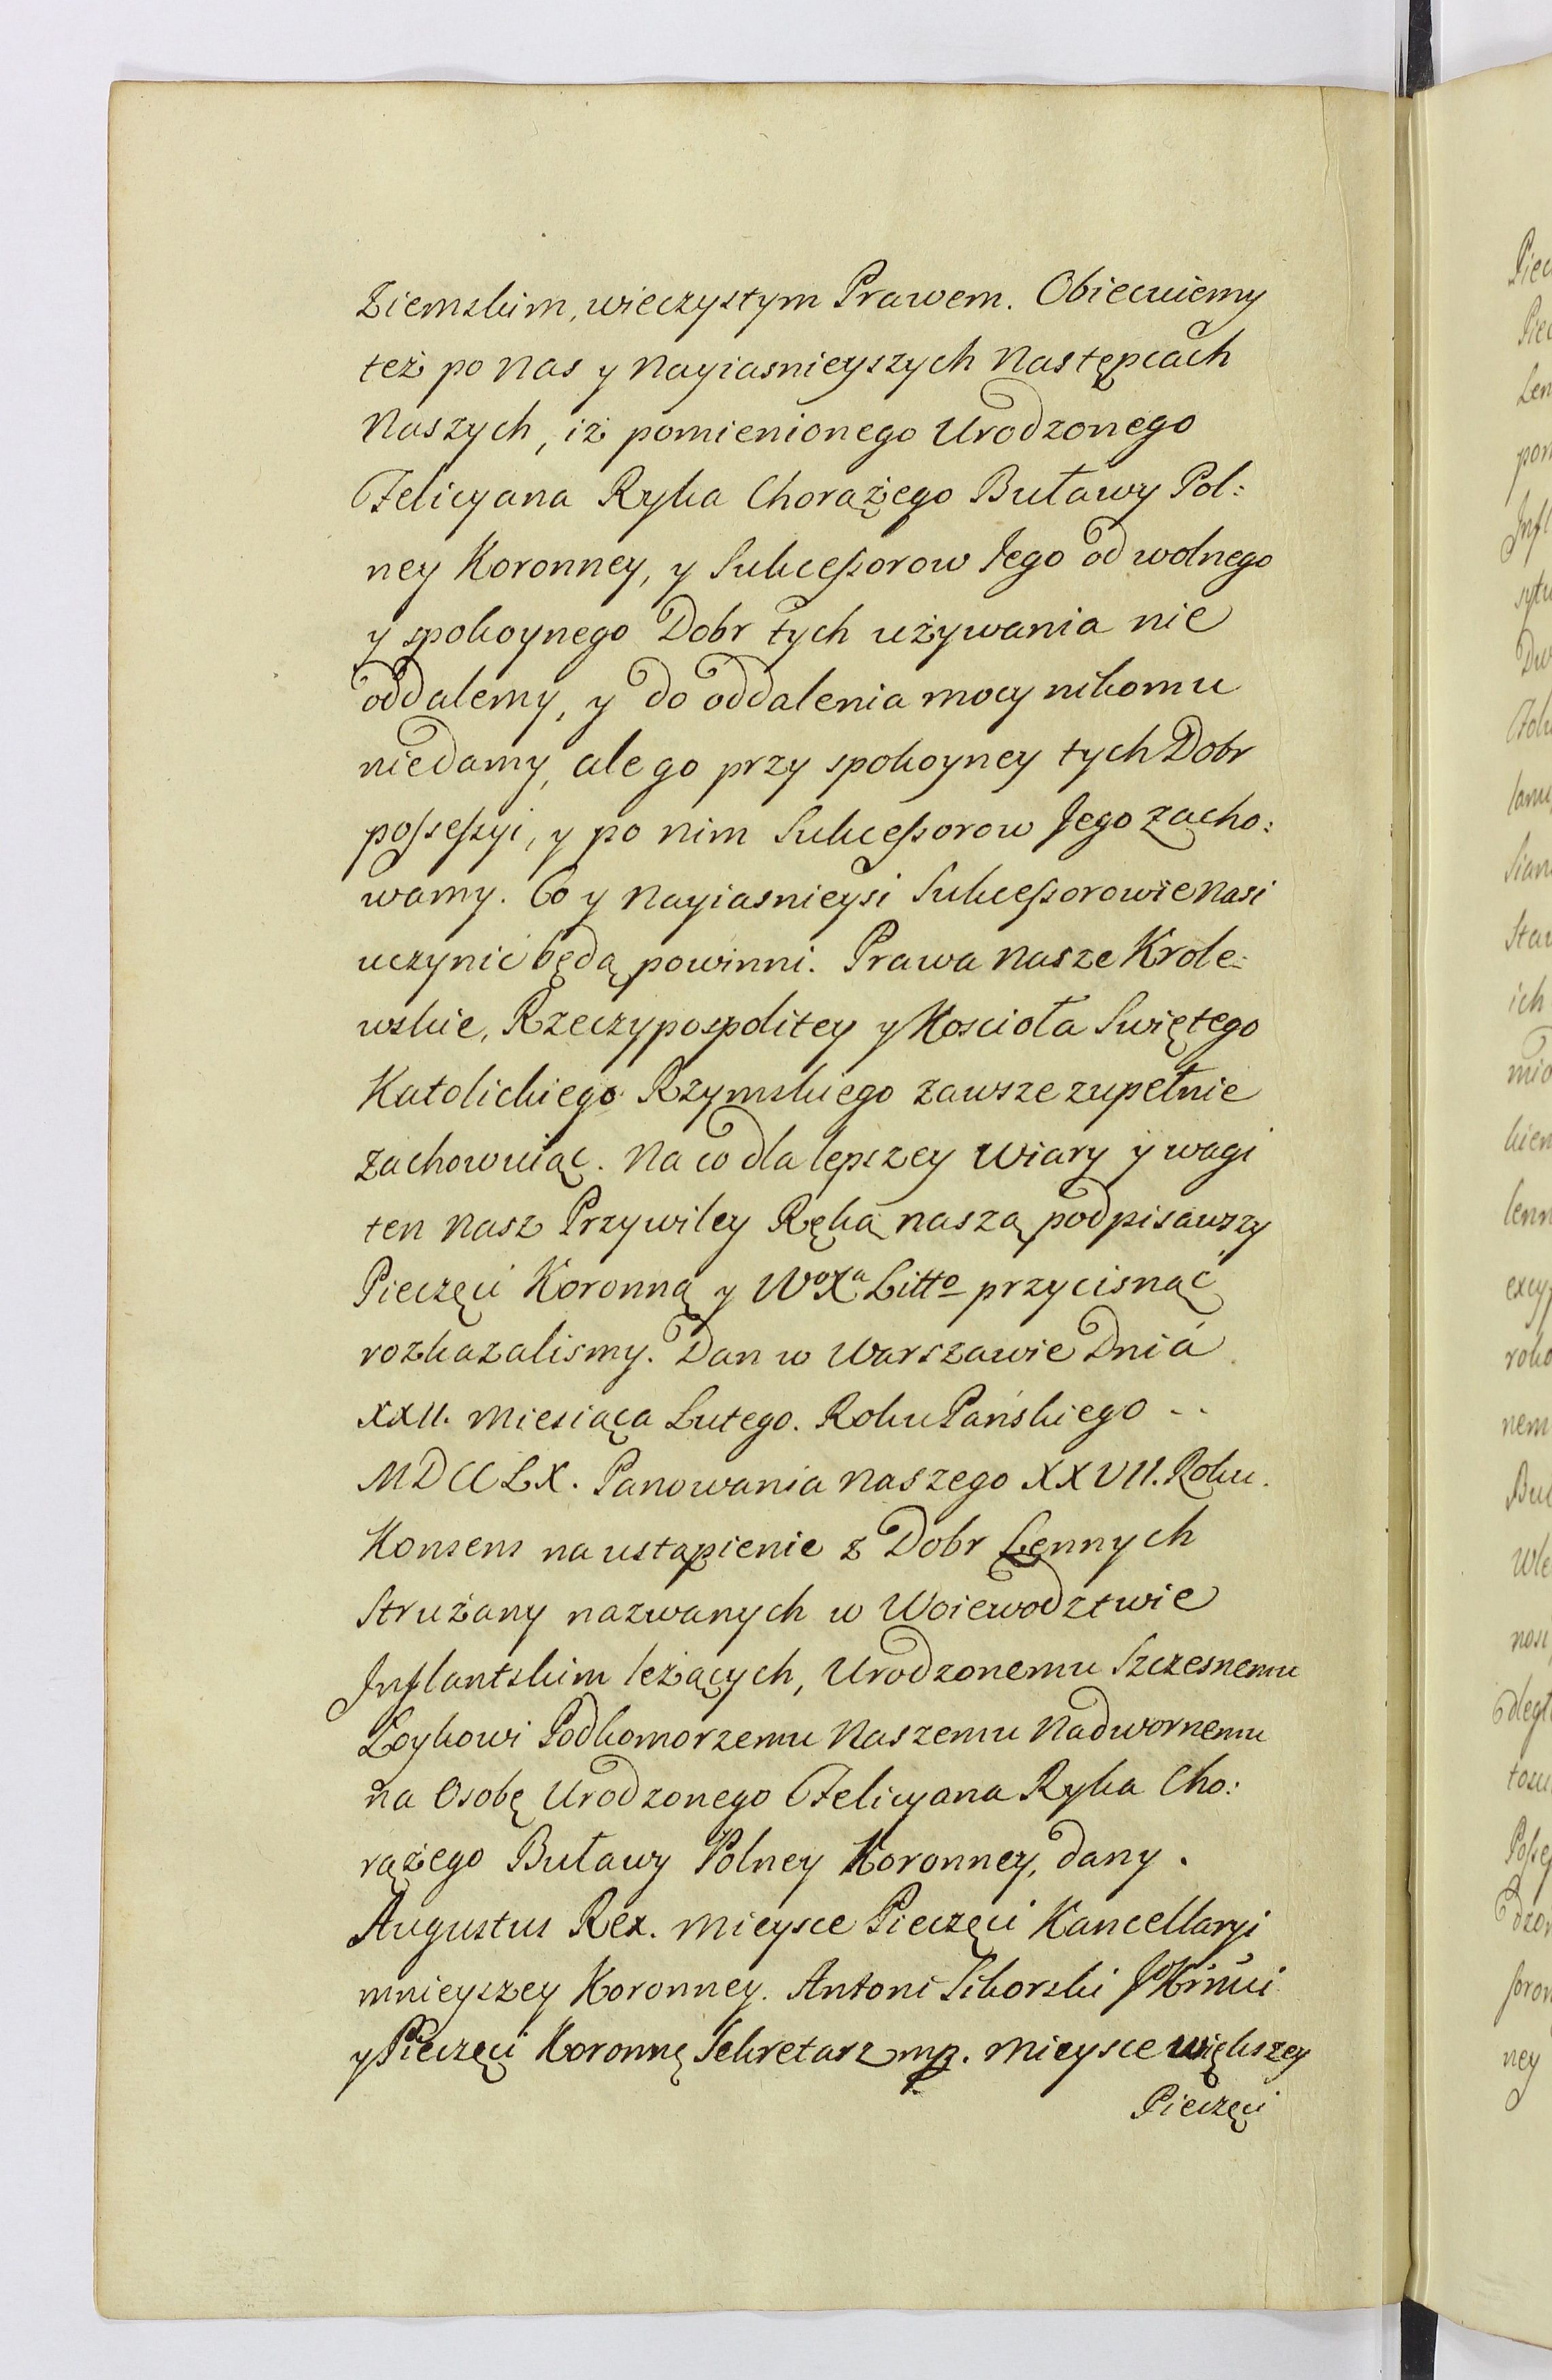 Ziemskim, wieczystym Prawem. Obiecuiemy
też po Nas y Nayiasnieyszych Następcach
Naszych, iż pomienionego Urodzonego
Felicyana Ryka Chorążego Buławy Pol:
ney Koronney, y Sukceßorow Jego od wolnego
y spokoynego Dobr tych używania nie
oddalemy, y do oddalenia mocy nikomu
niedamy, ale go przy spokoyney tych Dobr
possessyi, y po nim Sukceßorow Jego zacho:
wamy. Co y Nayiasnieysi Sukceßorowie Nasi
uczynić będą powinni. Prawa Nasze Krole:
wskie, Rzeczypospolitey y Koscioła Swiętego
Katolickiego Rzymskiego zawsze zupełnie
zachowuiąc. Na co dla lepszey wiary y wagi
ten Nasz Przywiley Ręką naszą podpisawszy
Pieczęci Koronną y WoXa Litto przycisnąć
rozkazalismy. Dan w Warszawie Dnia
XXII. Miesiąca Lutego. Roku Pańskiego --
MDCCLX. Panowania Naszego XXVII. Roku.
Konsens na ustąpienie z Dobr Lennych
Strużany nazwanych w Woiewodztwie
Inflantskim leżących, Urodzonemu Szczesnemu
Łoykowi Podkomorzemu Naszemu Nadwornemu
na Osobę Urodzonego Felicyana Ryka Cho:
rążego Buławy Polney Koronney, dany.
Augustus Rex. Mieysce Pieczęci Kancellaryi
mnieyszey Koronney. Antoni Sikorski
y Pieczęci Koronnę Sekretarz mp. Mieysce większey
Pieczęci